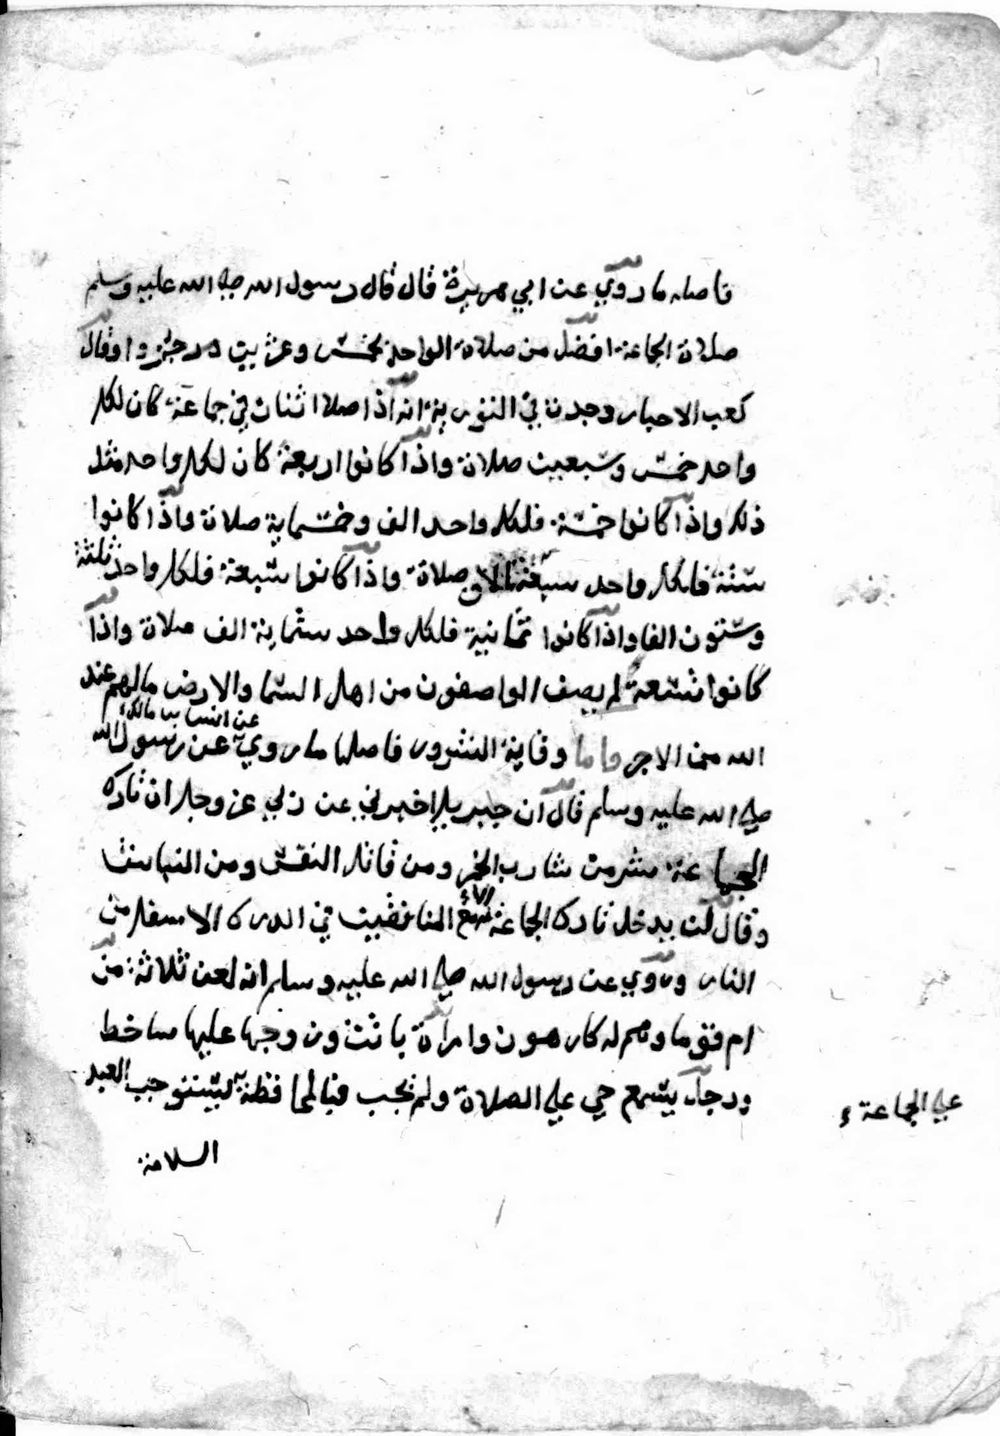 فاصله ما روي عن ابي هريرة قال قال رسول الله صلى الله عليه وسلم
صلاة الجماعة افضل من صلاة الواحد بخمس وعشرين درجة وقال
كعب الاحبار وجدت في التورية انه اذا صلا اثنان في جماعة كان لكل
واحد خمس وسبعين صلاة واذا كانوا اربعة كان لكل واحد مثل
ذلك واذا كانوا خمسة فلكل واحد الف وخمسماية صلاة واذا كانوا
ستة فلكل واحد سبعة الاف صلاة واذا كانوا سبعة فلكل واحد ثلثة
وستون الفا واذا كانوا ثمانية فلكل واحد ستماية الف صلاة واذا
كانوا تسعة لم يصف الواصفون من اهل السما والارض مالهم عند
الله من الاجر واما وقاية الشرور فاصلها ما روي عن انس بن مالك عن رسول الله
صلى الله عليه وسلم قال ان جبريل اخبرني عن ربي عز وجل ان تارك
الجماعة شر من شارب الخمر ومن قاتل النفس ومن
وقال لن يدخل تارك الجماعة الا مع المنافقين في الدرك الاسفل من
النار وروي عن رسول الله صلى الله عليه وسلم انه لعن ثلاثة من
ام قوما وهم له كارهون وامراة باتت وزوجها عليها ساخط
ورجل يسمع حي على الصلاة ولم يجب فبالمحافظة يستوجب العبد
على الجماعة
السلامة